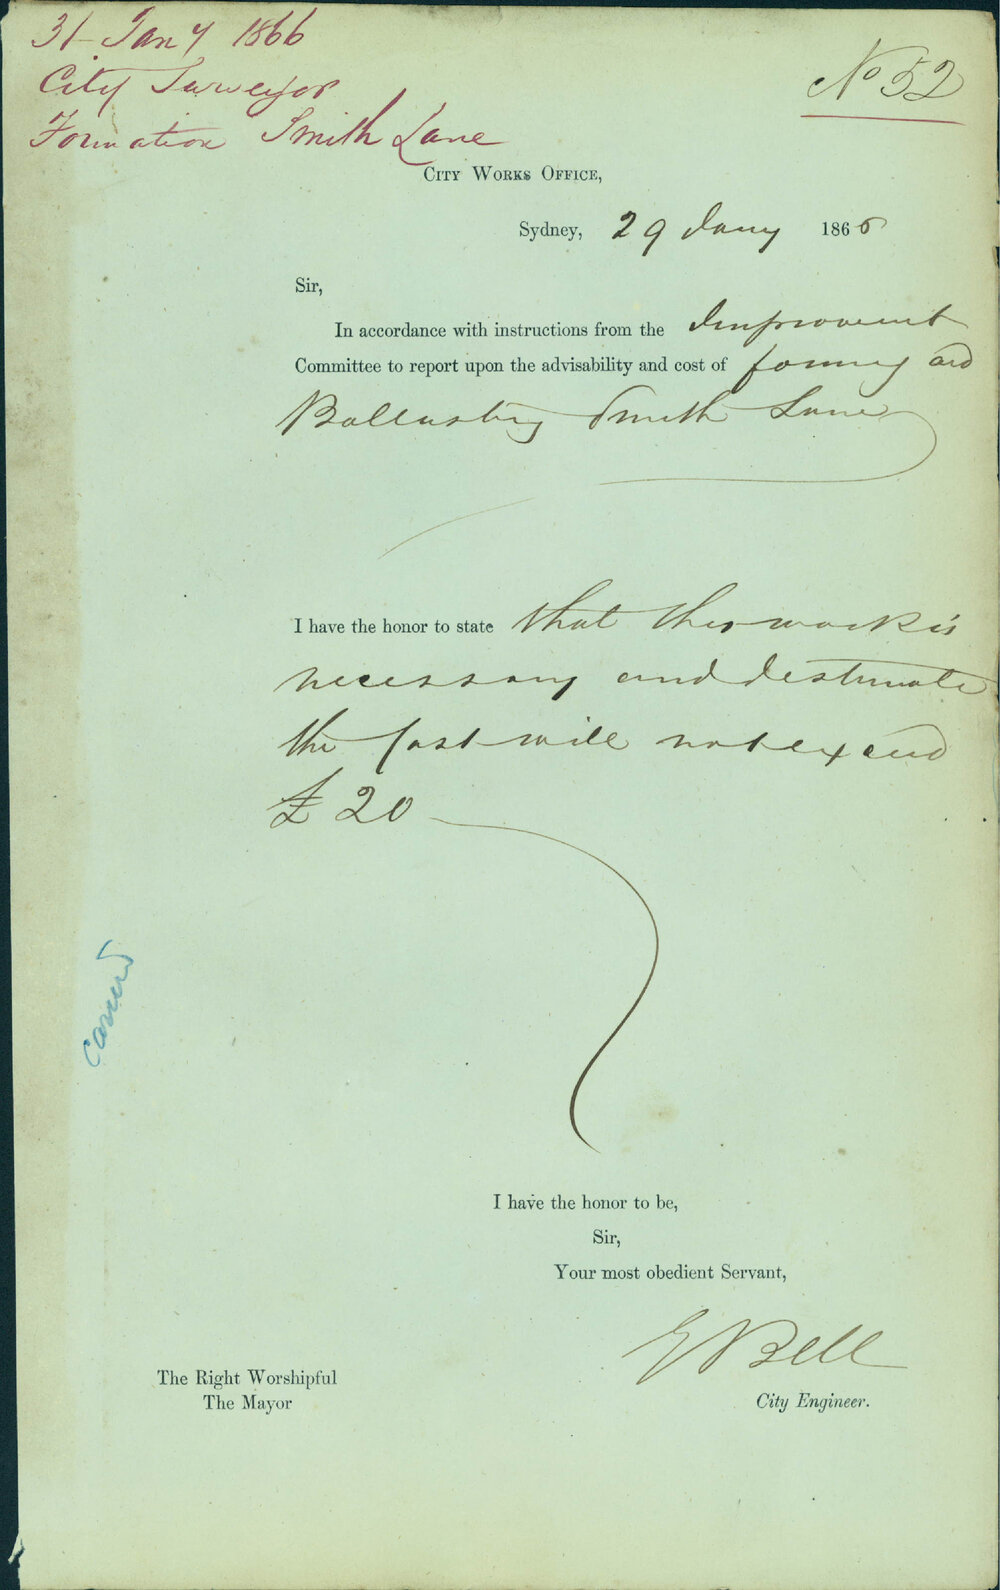 31 Jany 1866
City Surveyor
Formation Smith Lane
No 52
City Works Office,
Sydney, 29 Jany 1866
Sir,
In accordance with instructions from the Improvement
Committee to report upon the advisability and cost of forming and
Ballasting Smith Lane
I have the honor to state that this work is
necessary and I estimate
the Cost will not exceed
£20
Carried
I have the honor to be,
Sir,
Your most obedient Servant,
E Bell
City Engineer.
The Right Worshipful
The Mayor